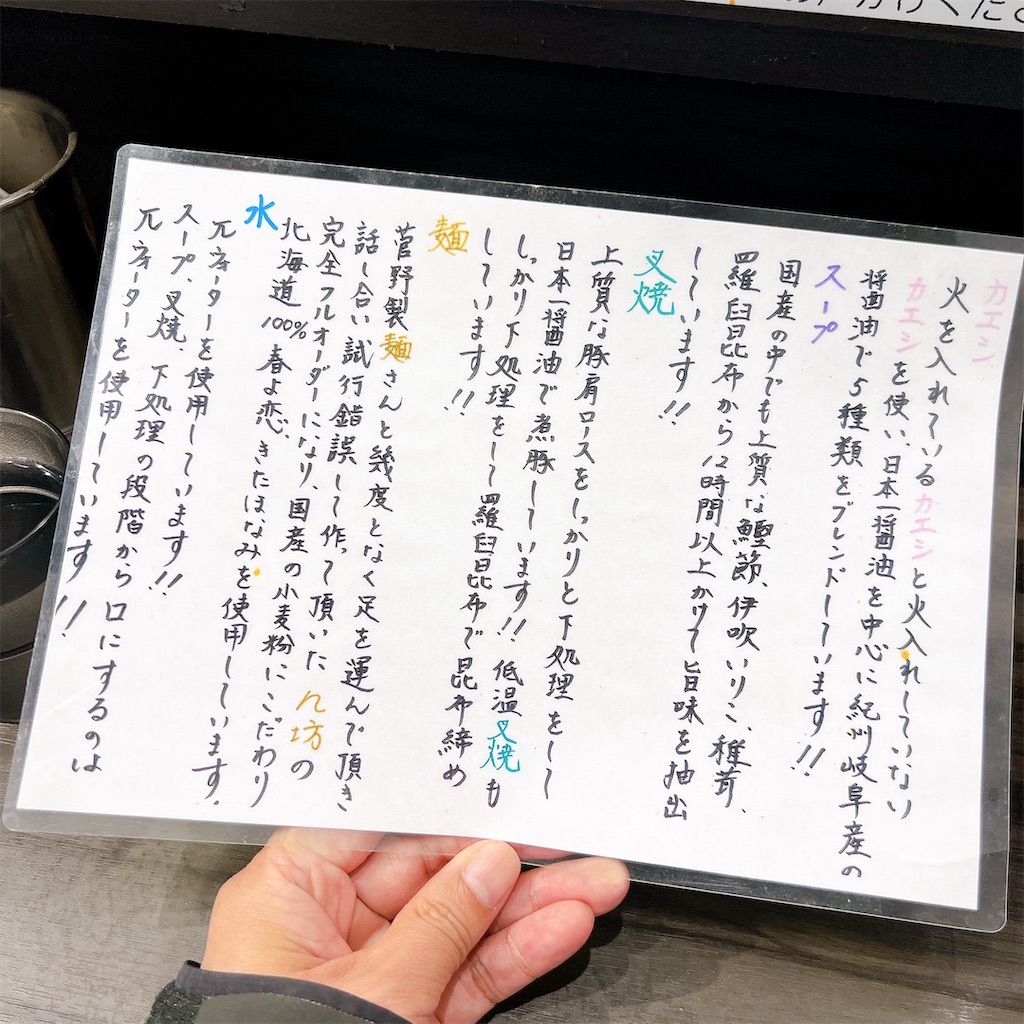 カエシ
火を入れているカエシと火入れしていない
カエシを使い、日本一醤油を中心に紀州岐阜産の
醤油で5種類をブレンドしています!!
スープ
国産の中でも上質な鰹節、伊吹いりこ、椎茸、
羅臼昆布から12時間以上かけて旨味を抽出
しています!!
叉焼
上質な豚肩ロースをしっかりと下処理をして
日本一醤油で煮豚しています!! 低温叉焼も
しっかり下処理をして羅臼昆布で昆布締め
しています!!
麺
菅野製麺さんと幾度となく足を運んで頂き
話し合い試行錯誤して作って頂いた ん坊の
完全フルオーダーになり、国産の小麦粉にこだわり
北海道100% 春よ恋、きたほなみを使用しています。
水
πウォーターを使用しています!!
スープ、叉焼、下処理の段階から口にするのは
πウォーターを使用しています!!